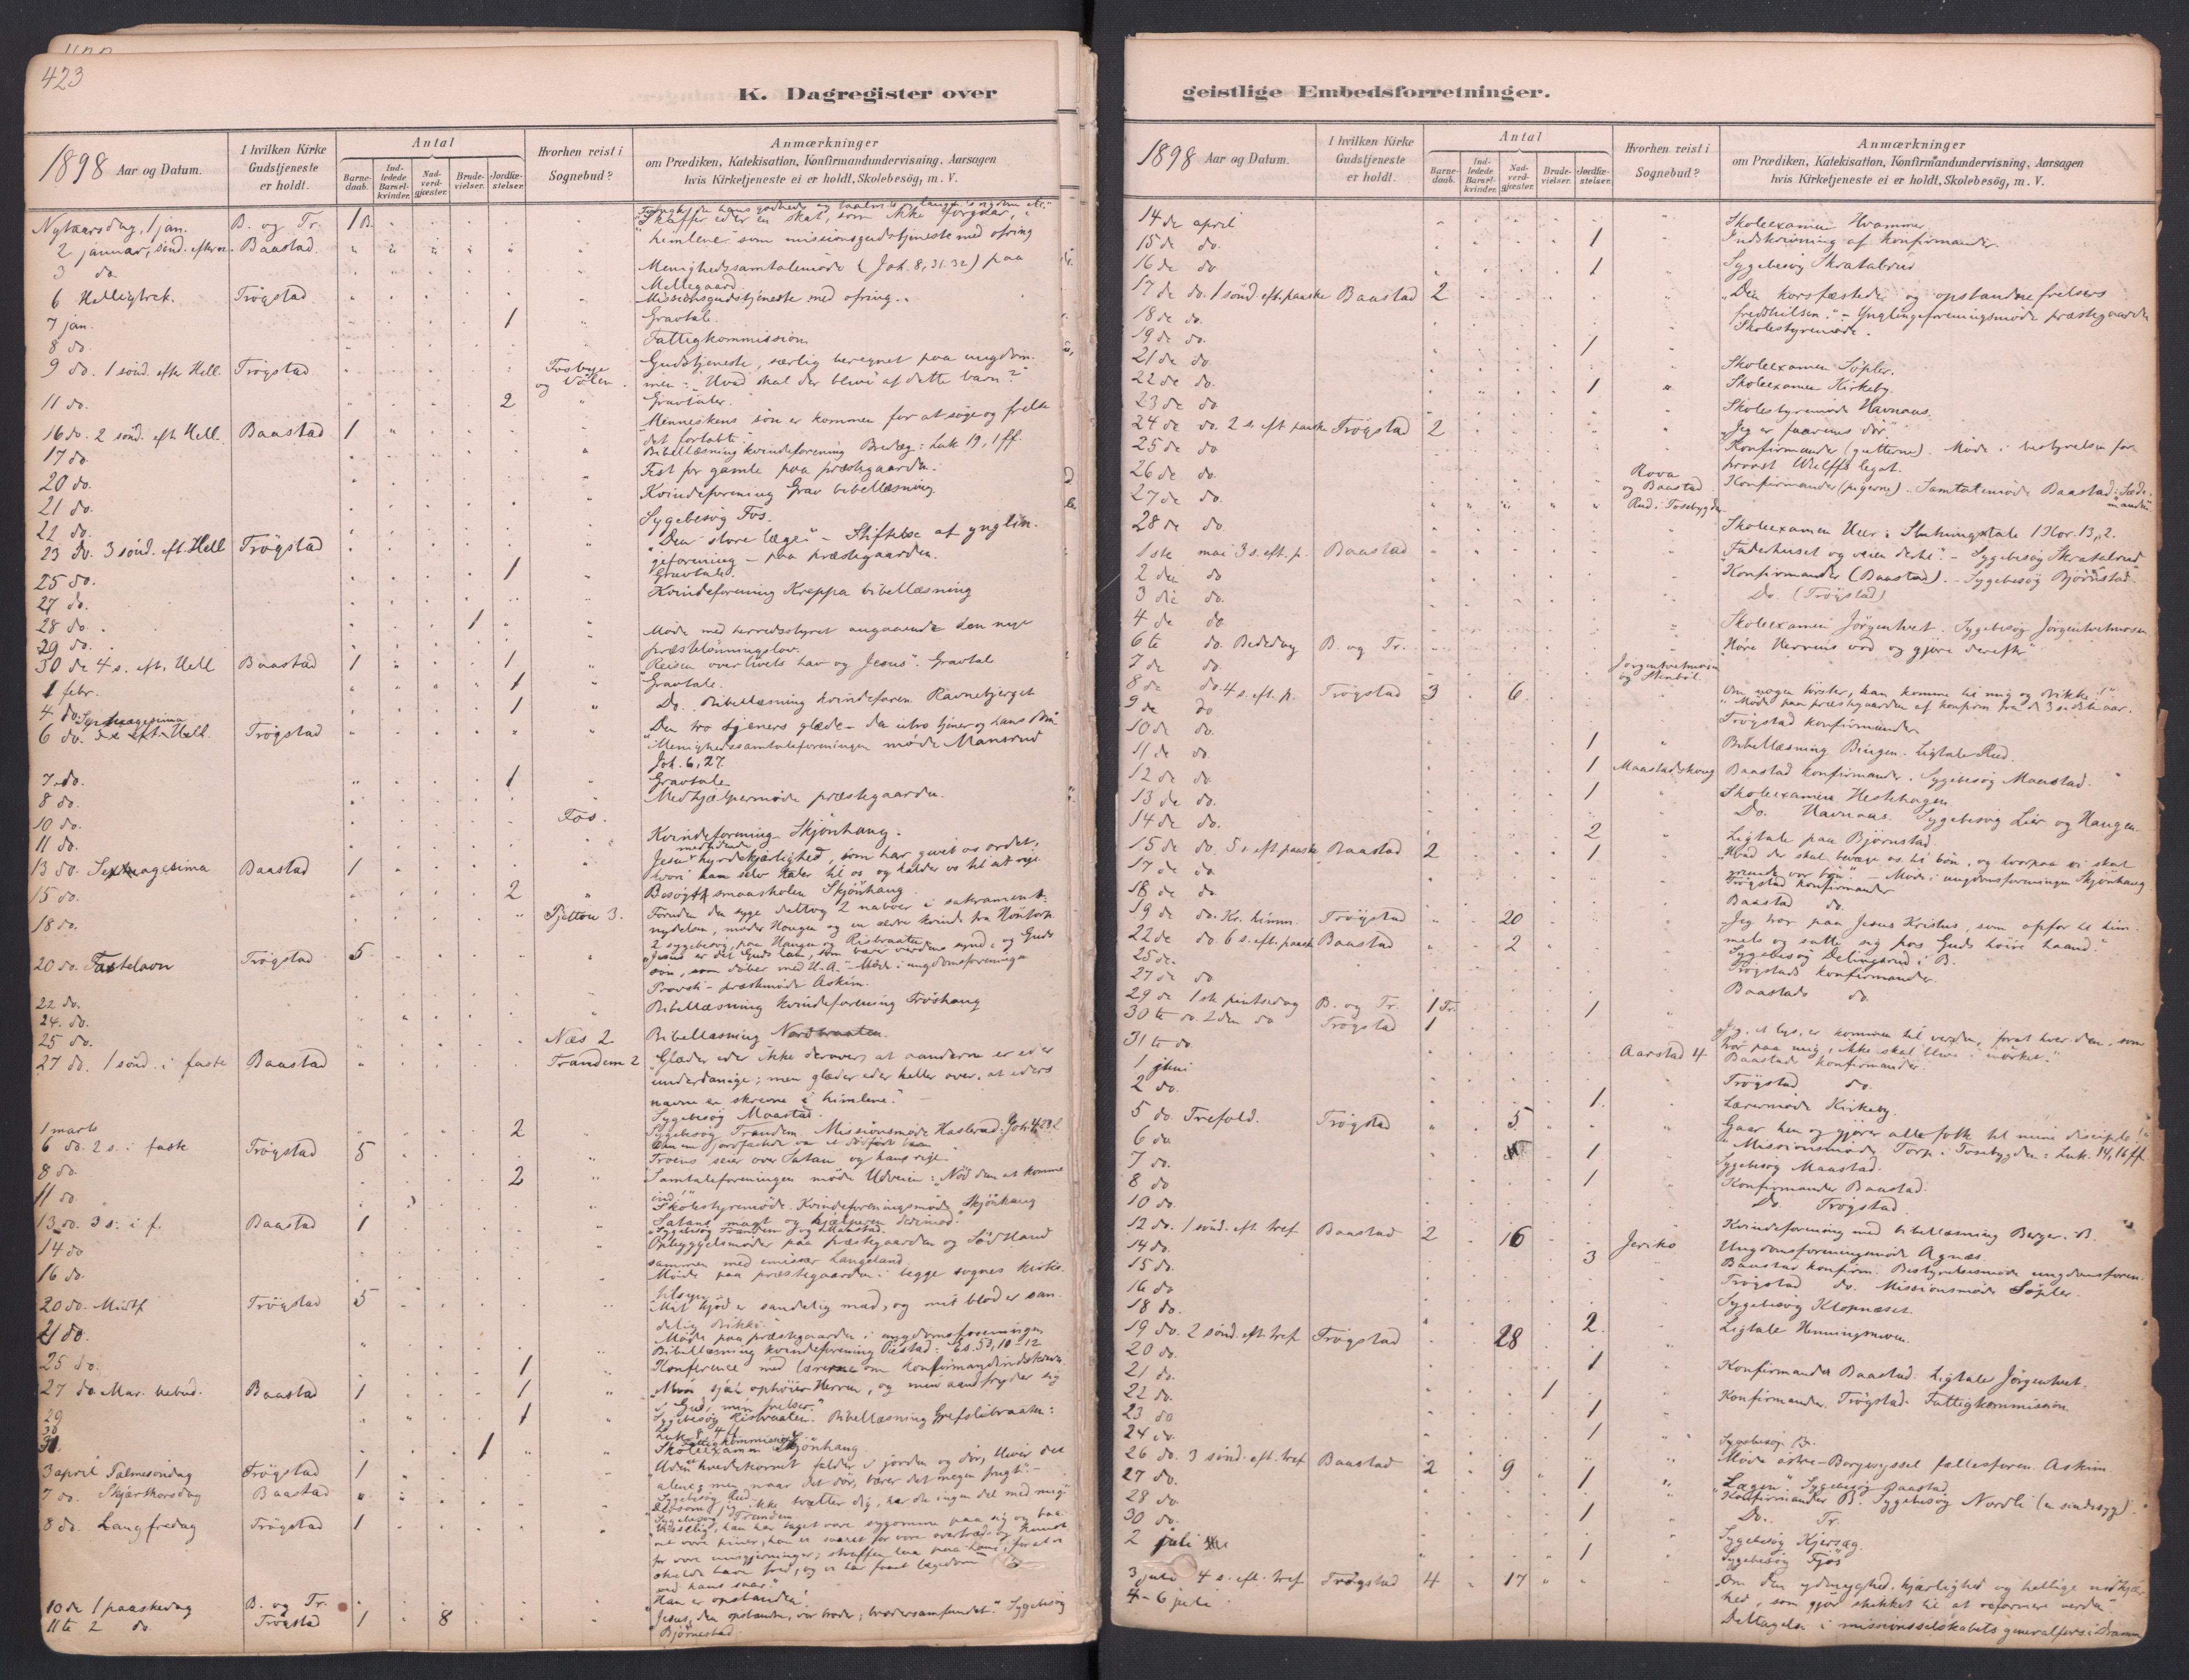 423
K. Dagregister over
1898 Aar og Datum.
I hvilken Kirke Gudstjeneste er holdt.
Antal
Barnedaab.
Indledede Barselkvinder.
Nadverdgjester.
Brudevielser.
Jordfæstelser.
Hvorhen reist i Sognebud?
Anmærkninger
om Prædiken, Katekisation, Konfirmandundervisning, Aarsagen
hvis Kirketjeneste ei er holdt, Skolebesøg, m. V.
Nytaarsdag, 1 jan. B. og Tr. 1 B.
"Skaffer eder en skat, som ikke forgaar, i
2 januar, sønd. eftern. Baastad himlene" som missionsgudstjeneste med ofring
3 do. Menighedssamtalemøde (Joh. 8, 31.32) paa
Mellegaard.
6 Helligtrek. Trøgstad Missionsgudstjeneste med ofring.
7 jan. 1 Gravtale.
8 do. Fattigkommission
9 do. 1 sønd. efter Hell. Trøgstad Fosbye og Gudstjeneste, særlig beregnet paa ungdom-
men: "Hvad skal der blive af dette barn?"
11 do. 2 Gravtaler.
16 do. 2 sønd. eft. Hell. Baastad 1 Menneskens søn er kommen for at søge og frelse
det fortabte.
17 do. Bibellæsning kvindeforening Bredeg: Luk 19, 1 ff.
20 do. Fest for gamle paa præstegaarden.
21 do. Kvindeforening Grav bibellæsning
22 do. Sygebesøg Fos.
23 do. 3 sønd. eft. Hell Trøgstad "Den store læge" - Stiftelse af ynglin-
geforening - paa præstegaarden.
25 do. 1 Gravtale.
27 do. Kvindeforening Kreppa bibellæsning
28 do. 1
29 do. Møde med herredsstyret angaaende den nye
præstelønningslov.
30 de 4 s. eft. Hell Baastad 1 1 "Reisen over livets hav og Jesus". Gravtale
1 febr. 1 Gravtale
4 do. 1 Do. Bibellæsning kvindeforen. Ravnebjerget
6 do. Septuagesima Trøgstad Den tro tjeners glæde - den utro tjener og hans
Menighedssamtaleforeningen møde Mansrud
Joh. 6, 27.
7 do. 1 Gravtale
8 do. Medhjælpermøde præstegaarden.
10 do. Fos.
11 do. Kvindeforening Skjønhaug.
13 do. Sexagesima Baastad 1 Jesu hyrdekjærlighed, som har givet os ordet,
hvori han selv taler til os og kalder os til sit rige
15 do. 2 Besøgt smaaskolen Skjønhaug
18 do. Tjettou 3. Foruden den syge deltog 2 naboer i sakrament-
nydelsen, moder Haugen og en ældre kvinde fra
2 sygebesøg, paa Haugen og Risbraaten
20 do. Fastelavn Trøgstad 5 "Jesus er det Guds lam, som bærer verdens synd, og Guds
søn, som døber med H. A." - Møde i ungdomsforeningen
Provsti - præstemøde Askim.
22 do. Bibellæsning kvindeforening Frøshaug
24. do.
25 do. Næs 2 Bibellæsning Nordbraaten.
27 do. 1 sønd. i faste Baastad Trandem 2 "Glæder eder ikke derover, at aanderne er eder
underdanige; men glæder eder heller over, at eders
navne er skrevne i himlene."
Sygebesøg Maastad.
1 marts 2 Sygebesøg Trandem. Missionsmøde Haslerud:
6 do. 2 s. i faste Trøgstad 5 Troens seier over Satan og hans rige
8 do. 2 Samtaleforeningen møde Udveien: "Nød dem at komme
ind!"
11 do. Skolestyremøde. Kvindeforeningsmøde Skjønhaug
13 do. 3 s. i f. Baastad 1 Satans magt og hjælpen derimod.
Sygebesøg Trandem og Maastad.
14 do Opbyggelsesmøder paa præstegaarden og
sammen med emissær Langeland
16 do. Møde paa præstegaarden i begge sognes kirke-
tilsyn.
20 do. Midtf Trøgstad 5 "Mit kjød er sandelig mad, og mit blod er san-
delig drikke."
21 do. Møde paa præstegaarden i ungdomsforeningen
Bibellæsning kvindeforening: Es. 53, 10-12
25 do. 1 Konference med lærerne om konfirmandindskrivn.
27 do. Mar. bebud. Baastad 1 1 "Min sjæl ophøier Herren, og min aand fryder sig
i Gud, min frelser."
29 1 Sygebesøg Risbraaten. Bibellæsning Grefslibraaten:
30 Luk. 8, 4 ff
31. 1 Skoleexamen Skjønhaug.
3 april Palmesøndag Trøgstad 1 Uden hvedekornet falder i jorden og dør, bliver det
alene; men naar det dør, bærer det megen frugt." -
7 do. Skjærthorsdag Baastad Sygebesøg Rud.
"Dersom jeg ikke tvætter dig, har du ingen del med mig"
Sygebesøg Trandem.
8 do. Langfredag Trøgstad 1 "Visselig, han har taget vore sygdomme paa sig og baa-
ret vore piner, han er saaret for vore overtrædelser, knust
for vore misgjerninger; straffen laa paa ham, forat vi
skulde have fred, og vi har faaet lægedom
ved hans saar."
10 de 1 paaskedag B. og Tr. Han er opstanden!
11te 2 do. Trøgstad 1 8 "Jesus, den opstandne, vor broder; brodersamfundet." Sygebesøg
Bjørnestad.
geistlige Embedsforretninger.
1898 Aar og Datum.
I hvilken Kirke Gudstjeneste er holdt.
Antal
Barnedaab.
Indledede Barselkvinder.
Nadverdgjester.
Brudevielser.
Jordfæstelser.
Hvorhen reist i Sognebud?
Anmærkninger
om Prædiken, Katekisation, Konfirmandundervisning, Aarsagen
hvis Kirketjeneste ei er holdt, Skolebesøg, m. V.
14 de april Skoleexamen Hvammer
15 de do. 1 Indskrivning af konfirmander.
16 de do 1 Sygebesøg Skratalsrud
17 de do. 1 sønd. eft. paaske Baastad 2 "Den korsfæstede og opstandne frelsers
fredshilsen." - Ynglingeforeningsmøde præstegaarden
18 de do. Skolestyremøde.
19 de do.
21 de do 1 Skoleexamen Søpler.
22 de do. 1 Skoleexamen Kirkeby.
23 de do Skolestyremøde Havnaas.
24 de do. 2 s. eft. paaske Trøgstad 2 "Jeg er faarenes dør"
25 de do Konfirmander (gutterne). Møde i bestyrelsen for
provst Wulffs legat.
26 de do. Rova og Baastad Konfirmander (pigerne). Samtalemøde Baastad: Sæde-
manden
27 de do. Rud i Fosebygden
28 de do Skoleexamen Uler: Slutningstale 1 Kor. 13, 2.
1ste mai 3 s. eft. p. Baastad "Faderhuset og veien dertil". - Sygebesøg Skratalsrud
2 den do Konfirmander (Baastad). - Sygebesøg Bjørnstad.
3 die do. Do. (Trøgstad)
4 de do. Skoleexamen Jørgentvet. Sygebesøg Jørgentvetmosen
6 te do. Bededag B. og Tr. "Høre Herrens ord og gjøre derefter"
7 de do. Jørgentvetmosen og Stenbøl.
8 de do. 4 s. eft. p. Trøgstad 3 6 Om nogen tørster, han komme til mig og drikke!"
9 de do Møde paa præstegaarden af konfirm. fra de 3 sidste aar.
10 de do. Trøgstad konfirmander
11 de do. 1 Bibellæsning Bingen. Ligtale Rud.
12 de do. 1 Maastadskoug Baastad konfirmander. Sygebesøg Maastad.
13 de do. 1 Skoleexamen Hestehagen
14 de do. 2 Do. Havnaas. Sygebesøg Lier og Haugen
15 de do. 5 s. eft. paaske Baastad 2 1 Ligtale paa Bjørnstad.
"Hvad der skal bevæge os til bøn, og hvorpaa vi skal
grunde vor bøn" - Møde i ungdomsforeningen Skjønhaug
17 de do Trøgstad konfirmander
18 de do Baastad do.
19 de do. Kr. himm. Trøgstad 20 Jeg tror paa Jesus Kristus, som opfor til him-
mels og satte sig hos Guds høire haand."
22 de do. 6 s. eft. paask Baastad 2
25 de. Sygebesøg Delingsrud i B.
27 de do Trøgstads konfirmander.
Baastads do.
29 de 1ste pintsedag B. og Tr. 1 Tr. 1
30 te do. 2 den do Trøgstad 1 Jeg, et lys, er kommen til verden, forat hver den, som
tror paa mig, ikke skal blive i mørket."
31 te do. Aarstad 4. Baastads konfirmander.
1 juni Trøgstad do.
2 do. 1. Lærermøde Kirkeby.
5 do. Trefold. Trøgstad 5 Gaar hen og gjører alle folk til mine disciple!"
6 do Missionsmøde Torp i Fosebygden: Luk. 14, 16 ff
7 do. 1 Sygebesøg Maastad.
8 do 1 Konfirmander Baastad.
10 do. Do. Trøgstad.
12 do. 1 sønd. eft. tref. Baastad 2 16 Jeriko Kvindeforening med bibellæsning Berger i B.
14 do. 3 Ungdomsforeningsmøde Agnæs.
15 do. Baastad konfirm. Bestyrelsesmøde ungdomsforen.
16 do Trøgstad do. Missionsmøde Søpler.
18 do. Sygebesøg Klopnæset.
19 do. 2 sønd. eft. tref Trøgstad 28 2. Ligtale Henningsmoen.
20 do.
21 do. 1 Konfirmander Baastad. Ligtale Jørgentvet.
22 do. 1
23 do 1 Konfirmander Trøgstad. Fattigkommission
24 do. 1 Sygebesøg B.
26 do. 3 sønd. eft. tref. Baastad 2 9 1 Møde østre-Borgesyssel fællesforen. Askim
27 do. "Lægen". Sygebesøg Baastad
28 do 1 Konfirmander B. Sygebesøg Nordli (en sindssyg).
30 do. Do. Tr.
2 juli 1 Sygebesøg Kjersæg.
Sygebesøg Fjøs
3 juli 4 s. eft. tref Trøgstad 4 17 "Om den ydmyghed, kjærlighed og hellige nidkjær-
hed, som gjør skikket til at reformere verden"
4 - 6 juli Deltagelse i missionsselskabets generalfors. i Dramm